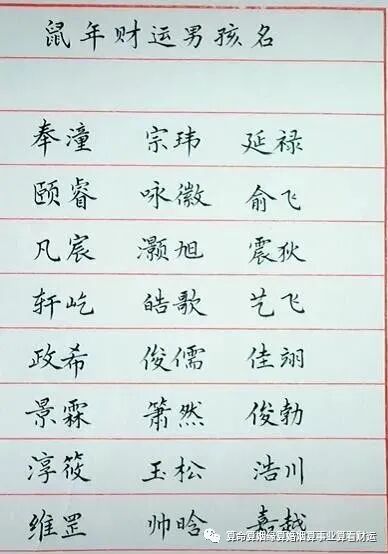 鼠年财运男孩名
奉潼 宗玮 延禄
颐睿 咏徽 俞飞
凡宸 灏旭 震狄
轩屹 皓歌 艺飞
政希 俊儒 佳翊
景霖 箫然 俊勃
淳筱 玉松 浩川
维罡 帅晗 嘉越
算命算姻缘算婚姻算事业算看财运